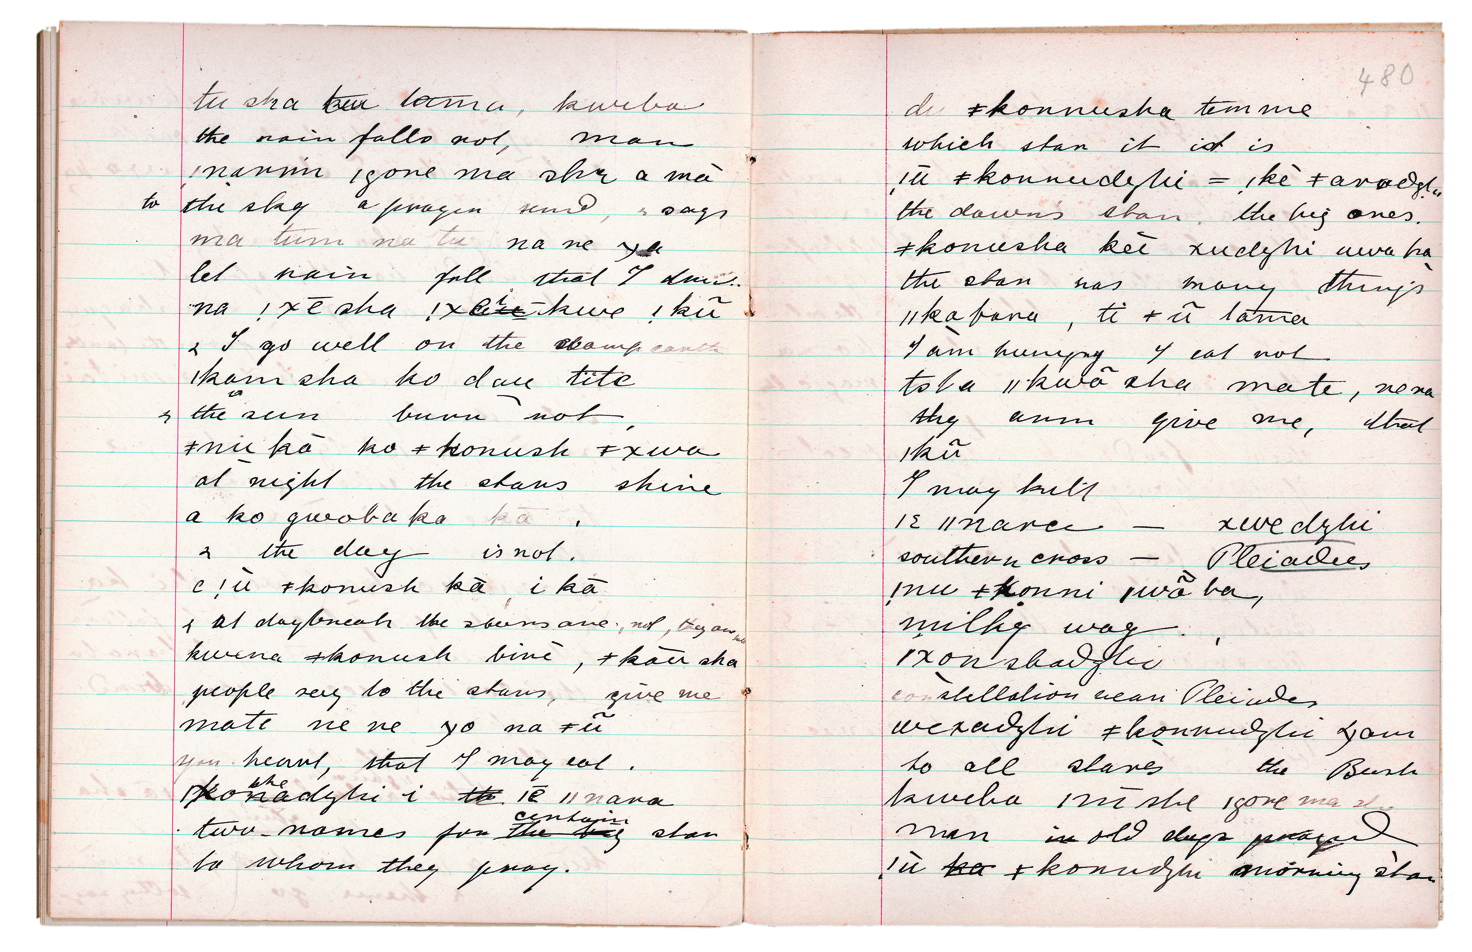 tu sha tuu tama, kweba
the rain falls not, man
ǃnarrin ǀgore ma shꭓ a mā
to the sky a prayer send, & says
ma tum na tu na ne χa
let rain fall that I
na ǃχē sha ǃχ kwe ǃkū
& I go well on the damp earth
ǀkam sha ko dau tite
& the sun burn not,
ǂnu kā ko ǂkonush ǂχwa
at night the stars shine
a ko gwobaka kā .
& the day is not.
c ǃū ǂkonush kā, i kā
& at daybreak the stars are not, they are
kwena ǂkonush birē, ǂkāu sha
people say to the stars, give me
mate ne ne χo na ǂū
your heart, that I may eat.
the
ǀkonadzhi i the ǀē ǁnara
certain
two names for the big star
to whom they pray.
480
du ǂkonnusha temme
which star it is is
ǃū ǂkonnudzhi = ǃkē
the dawn's star. the big ones.
ǂkonusha kēī χudzhi uwa ha
the star has many things
ǁkabara, ti ǂū tama
I am hungry I eat not
tsba ǁkwā sha mate, nena
thy arm give me, that
ǀkū
I may kill
ǀε ǁnarce — χwedzhi
southern cross — Pleiades
ǃnu ǂkonni ǀwā ba,
milky way.
ǀχonsbadzhi
constellation near Pleiades
weχadzhi ǂkonnudzhi χam
to all stars the Bush
kweba ǀnī she ǀgore ma
men in old days prayed
ǃū ka ǂkonudzhi morning star